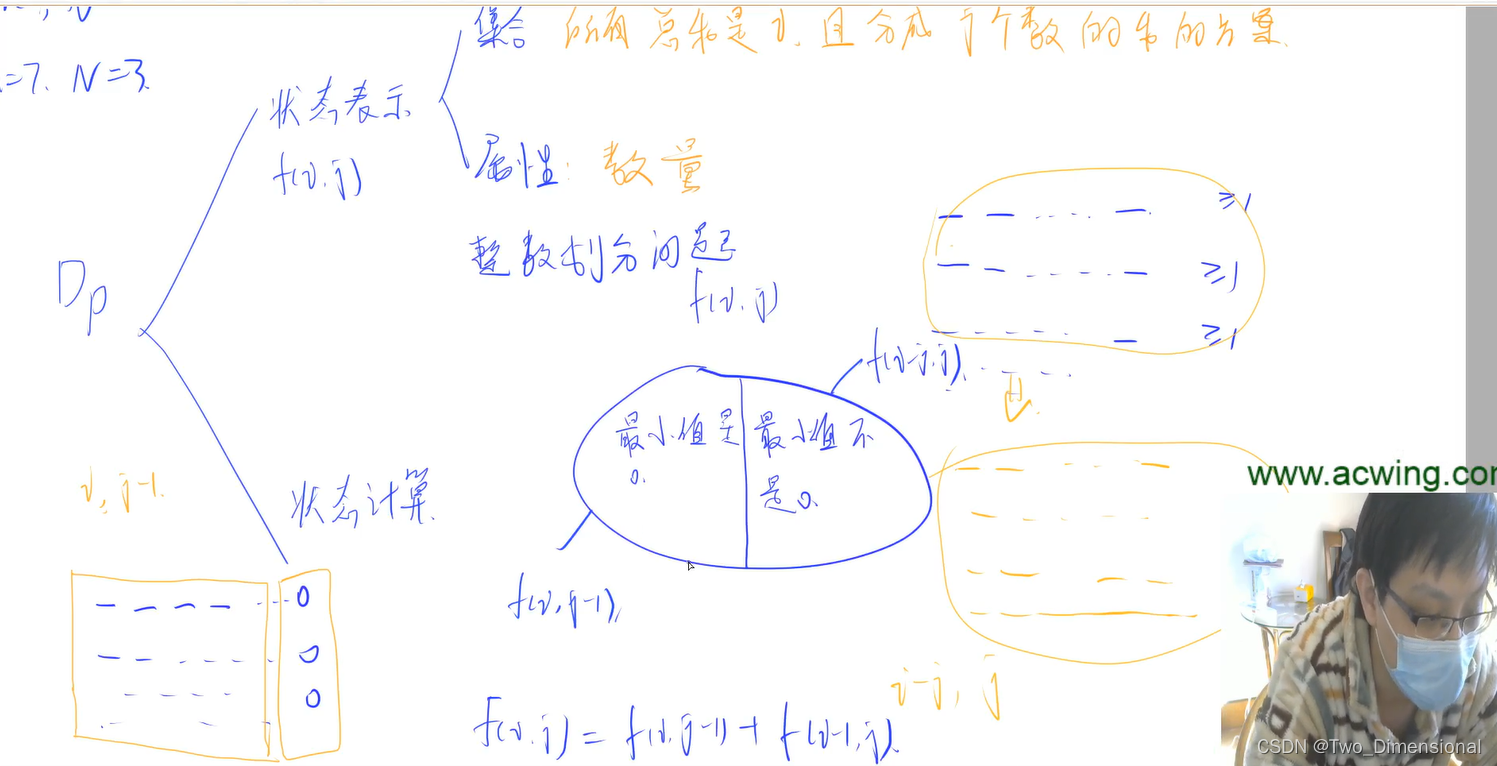 =7. N=3.
集合 所有总和是i,且分成j个数的和的方案.
状态表示
f(i,j)
属性: 数量
整数划分问题
f(i,j)
Dp
≥1
≥1
≥1
f(i-j,j),
最小值是
0.
最小值不
是0.
www.acwing.com
i, j-1.
状态计算.
0
0
0
f(i,j-1),
i-j, j
f(i,j) = f(i,j-1) + f(i-1,j).
CSDN @Two_Dimensional